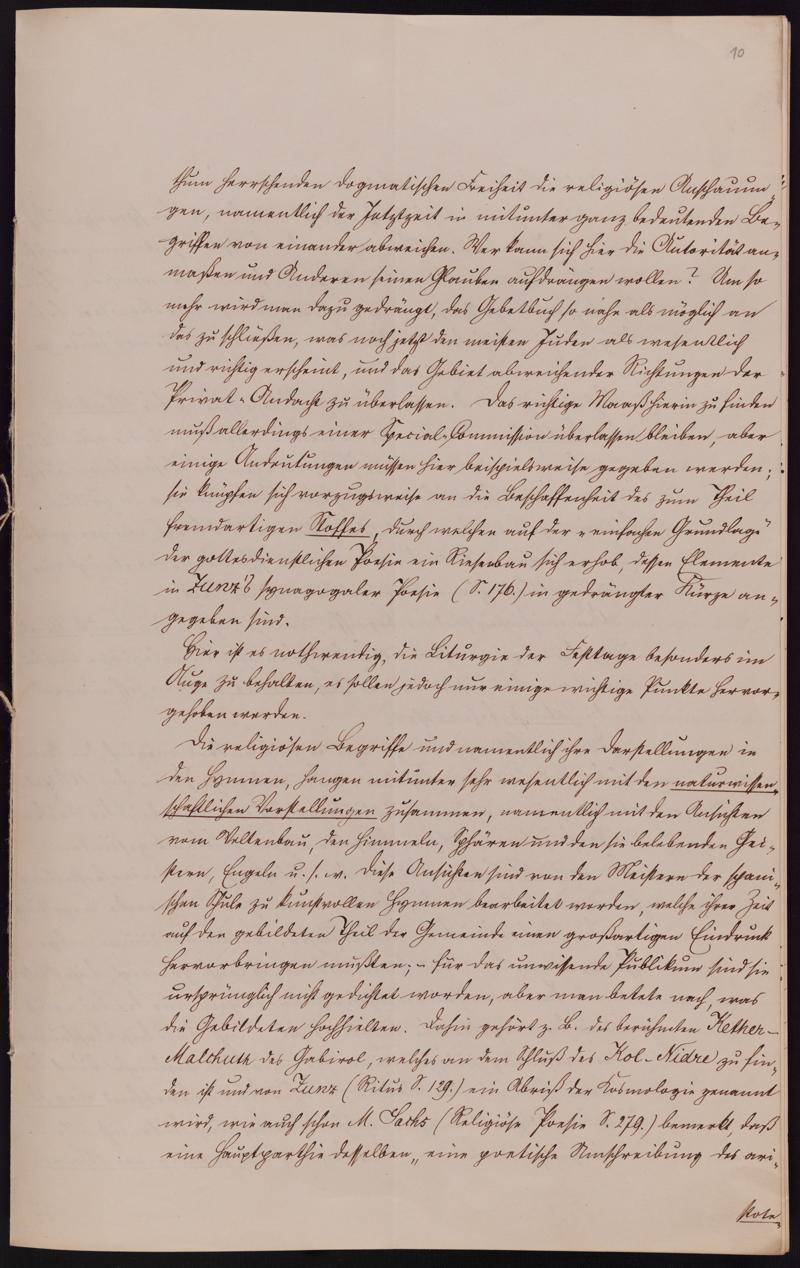 10
thum herrschenden dogmatischen Freiheit die religiösen Anschauun-
gen, namentlich der Jetztzeit in mitunter ganz bedeutenden Be-
griffen von einander abweichen. Wer kann sich hier die Autorität an-
maßen und Anderen seinen Glauben aufdrängen wollen? Um so
mehr wird man dazu gedrängt, das Gebetbuch so nahe als möglich an
das zu schließen, was noch jetzt den meisten Juden als wesentlich
und richtig erscheint, und das Gebiet abweichender Richtungen der
Privat-Andacht zu überlassen. Das richtige Maaß hierin zu finden
muß allerdings einer Special-Commission überlassen bleiben, aber
einige Andeutungen müssen hier beispielsweise gegeben werden;
sie knüpfen sich vorzugsweise an die Beschaffenheit des zum Theil
fremdartigen Stoffes, durch welchen auf der „einfachen Grundlage"
der gottesdienstlichen Poesie ein Riesenbau sich erhob, dessen Elemente
in Zunz's synagogaler Poesie (S. 176.) in gedrängter Kürze an-
gegeben sind.
Hier ist es nothwendig, die Liturgie der Festtage besonders im
Auge zu behalten, es sollen jedoch nur einige wichtige Punkte hervor-
gehoben werden.
Die religiösen Begriffe und namentlich ihre Darstellungen in
den Hymnen, hangen mitunter sehr wesentlich mit den naturwissen-
schaftlichen Vorstellungen zusammen, namentlich mit den Ansichten
vom Weltenbau, den Himmeln, Sphären und den sie belebenden Gei-
stern, Engeln u. s. w. Diese Ansichten sind von den Meistern der spani-
schen Schule zu kunstvollen Hymnen bearbeitet worden, welche ihrer Zeit
auf den gebildeten Theil der Gemeinde einen großartigen Eindruck
hervorbringen mußten; – für das unwissende Publikum sind sie
ursprünglich nicht gedichtet worden, aber man betete nach, was
die Gebildeten hochhielten. Dahin gehört z. B. des berühmten Kether-
Malchuth des Gabirol, welches an dem Schluß des Kol-Nidre zu fin-
den ist und von Zunz (Ritus S. 129.) ein Abriß der Kosmologie genannt
wird, wie auch schon M. Sachs (Religiöse Poesie S. 279.) bemerkt, daß
eine Hauptparthie desselben „eine poetische Umschreibung des ari-
stote-